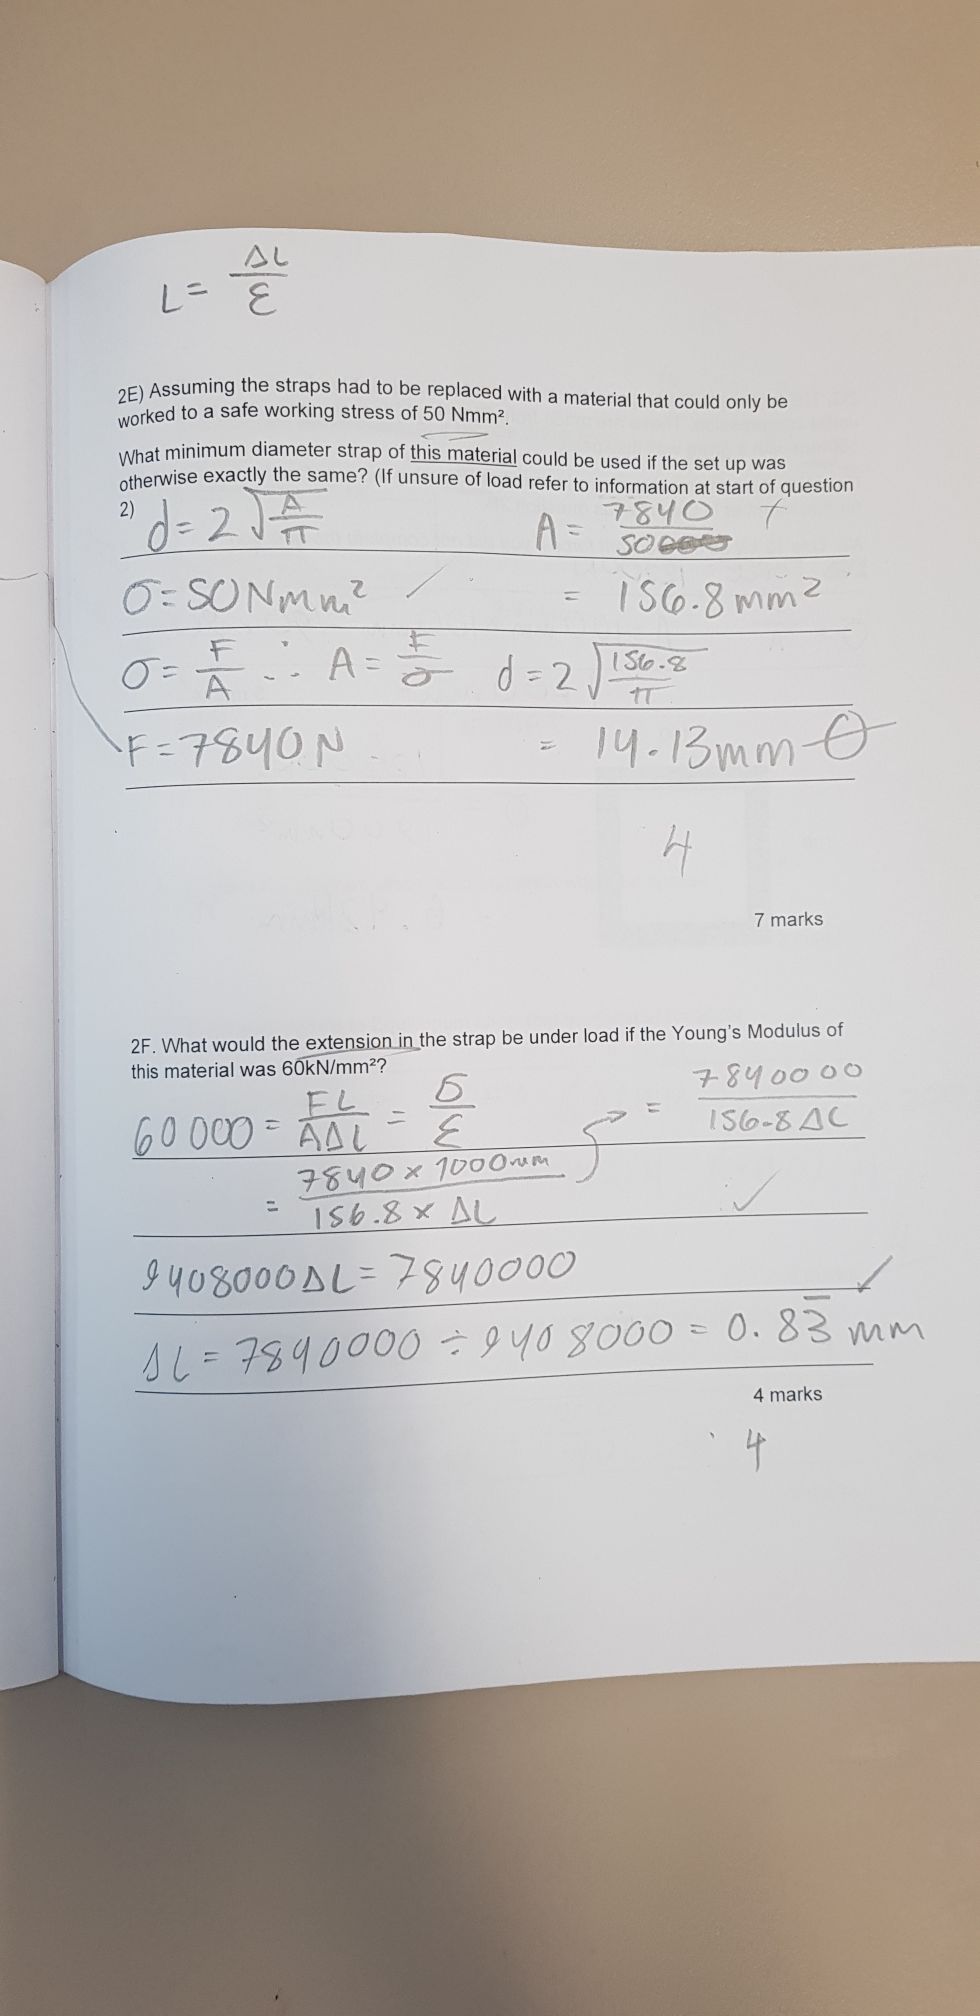 L = ΔL / ε
2E) Assuming the straps had to be replaced with a material that could only be
worked to a safe working stress of 50 Nmm².
What minimum diameter strap of this material could be used if the set up was
otherwise exactly the same? (If unsure of load refer to information at start of question
2)
d = 2 √(A / π)
A = 7840 / 50
σ = 50 Nmm²
= 156.8 mm²
σ = F / A ∴ A = F / σ
d = 2 √(156.8 / π)
F = 7840 N
= 14.13 mm
4
7 marks
2F. What would the extension in the strap be under load if the Young's Modulus of
this material was 60kN/mm²?
60 000 = FL / AΔL = σ / ε
= 7840 × 1000mm / 156.8 × ΔL
= 7840000 / 156.8 ΔL
9408000 ΔL = 7840000
ΔL = 7840000 ÷ 9408000 = 0.83̅ mm
4 marks
4